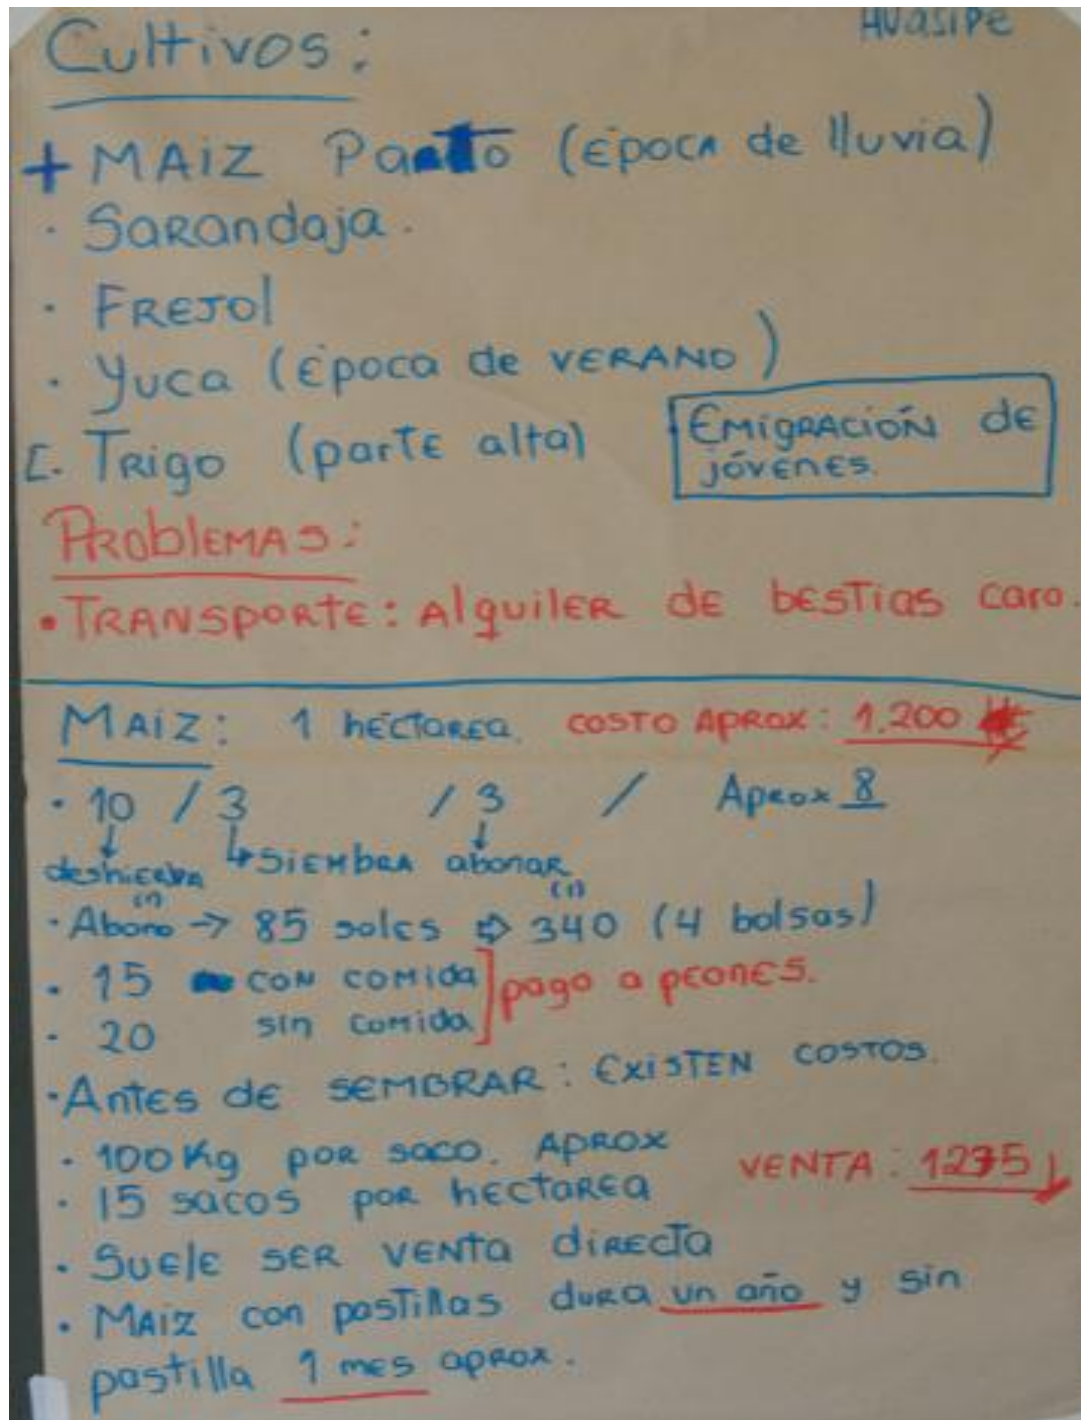 Huasipe
Cultivos:
+ Maiz (época de lluvia)
· Sarandaja.
· Frejol
· Yuca (época de verano)
· Trigo (parte alta)
Emigración de
jóvenes.
Problemas:
• Transporte: Alquiler de bestias caro.
Maiz: 1 hectarea. costo aprox: 1.200
· 10 / 3 / 3 / Aprox 8
deshierba ↳ siembra abonar
(1) (1)
· Abono → 85 soles ⇨ 340 (4 bolsas)
· 15 con comida
pago a peones.
· 20 sin comida
· Antes de sembrar: Existen costos.
· 100 Kg por saco. Aprox
Venta: 1275 ↓
· 15 sacos por hectarea
· Suele ser venta directa
· Maiz con pastillas dura un año y sin
pastilla 1 mes aprox.